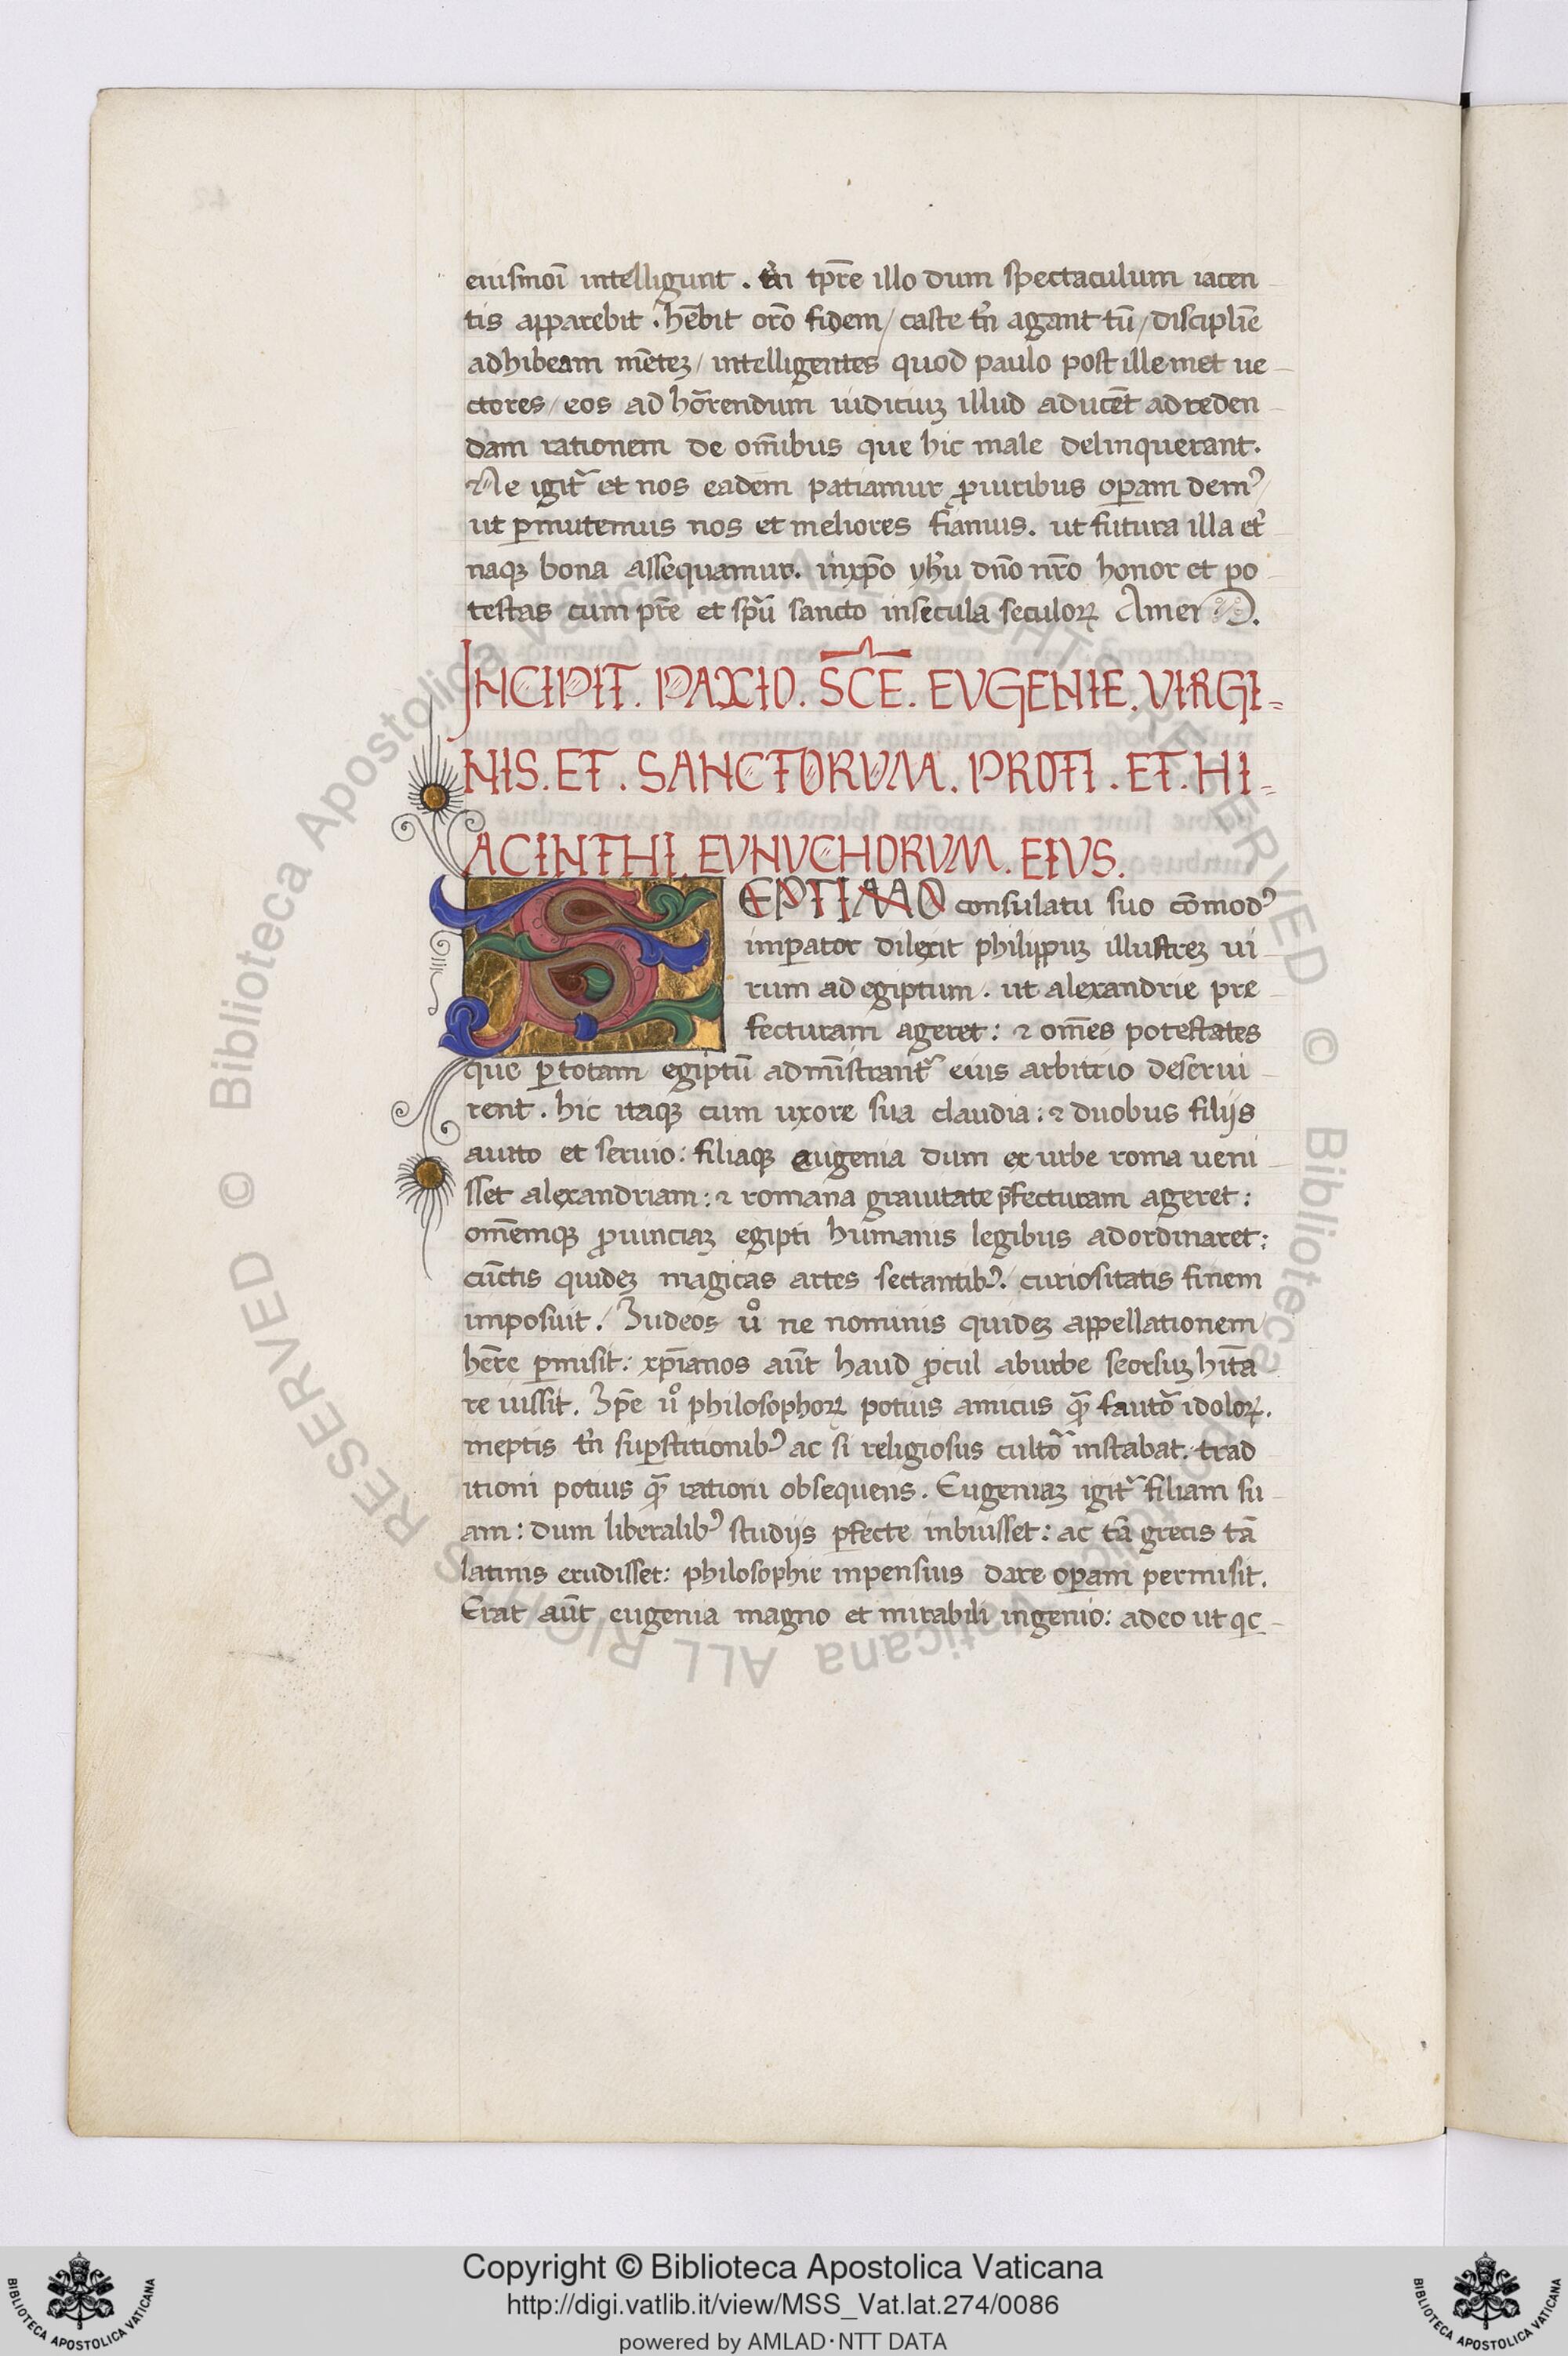 eiusmoi intelligunt . tn̄ tp̄re illo dum spectaculum iacen
tis apparebit . hēbit orō fidem / caste tn̄ agant tū / disciplīe
adhibeam mētez / intelligentes quod paulo post illemet ue
ctores / eos ad hōrrendum iudiciuz illud aducēt ad reden
dam rationem de om̄ibus que hic male delinquerant.
Ne igit᷑ et nos eadem patiamur ꝓuiribus oꝑam demꝰ /
ut ꝑmutemus nos et meliores fiamus. ut futura illa et̄
naqꝫ bona assequamur. inxp̄o yh̄u dn̄o nr̄o honor et po
testas cum pr̄e et sp̄ū sancto insecula seculoꝝ Amen.
INCIPIT. PAXIO. SC̄E. EVGENIE. VIRGI-
NIS. ET. SANCTORVM. PROTI. ET. HI-
ACINTHI. EVNVCHORVM. EIVS.
SEPTIMO consulatu suo cōmodꝰ
imꝑator dilexit philippuz illustrez ui
rum ad egiptum. ut alexandrie pre
fecturam ageret: ⁊ om̄es potestates
que ꝑ totam egiptū adm̄istrant᷑ eius arbitrio deserui
rent. hic itaqꝫ cum uxore sua claudia: ⁊ duobus filijs
auito et seruio: filiaqꝫ eugenia dum ex urbe roma ueni
sset alexandriam: ⁊ romana grauitate p̄fecturam ageret:
om̄emqꝫ ꝓuinciaz egipti humanis legibus adordinaret:
cūctis quidez magicas artes sectantibꝰ. curiositatis finem
imposuit. Iudeos uͦ ne nominis quidez appellationem
hēre ꝑmisit: xp̄ianos aūt haud ꝓcul aburbe seorsuz hīta
re iussit. Ip̄e uͦ philosophoꝝ potius amicus qᷓ fautōr idoloꝝ.
ineptis tn̄ suꝑstitionibꝰ ac si religiosus cultōr instabat. trad
itioni potius qᷓ rationi obsequens. Eugeniaz igit᷑ filiam su
am: dum liberalibꝰ studijs ꝑfecte inbuisset: ac tā grecis tā
latinis erudisset: philosophie inpensius dare oꝑam permisit.
Erat aūt eugenia magno et mirabili ingenio: adeo ut qc
Copyright © Biblioteca Apostolica Vaticana
http://digi.vatlib.it/view/MSS_Vat.lat.274/0086
powered by AMLAD·NTT DATA
BIBLIOTECA APOSTOLICA VATICANA
BIBLIOTECA APOSTOLICA VATICANA
© Biblioteca Apostolica Vaticana ALL RIGHTS RESERVED
© Biblioteca Apostolica Vaticana ALL RIGHTS RESERVED